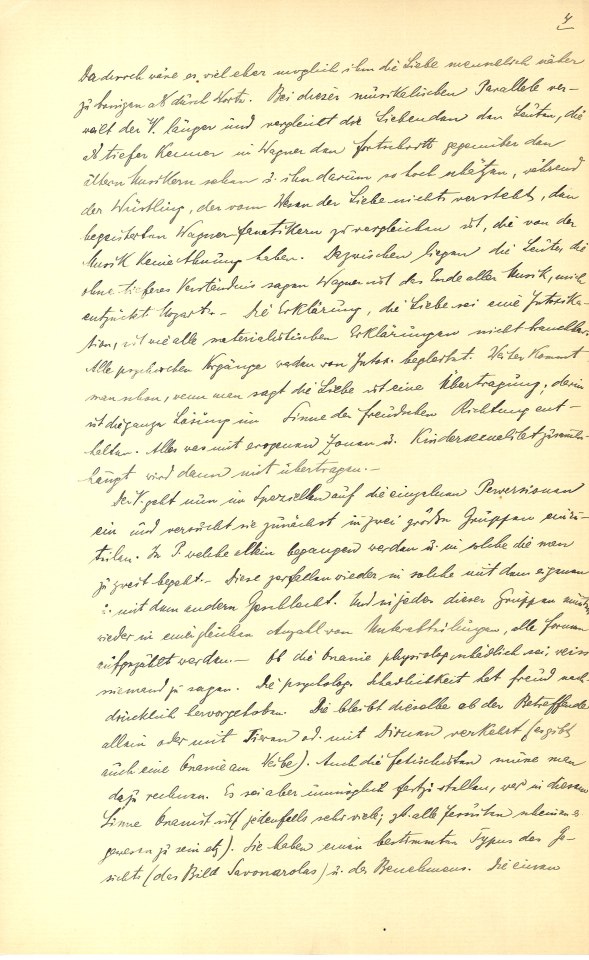 4
Dadurch wäre es viel eher möglich ihm die Liebe menschlich näher
zu bringen als durch Worte. Bei dieser musikalischen Parallele ver-
weilt der V. länger und vergleicht die Liebenden den Leuten, die
als tiefer Kenner in Wagner den Fortschritt gegenüber den
ältern Musikern sehen u. ihn darum so hoch schätzen, während
der Wüstling, der vom Wesen der Liebe nichts versteht, den
begeisterten Wagner-fanatikern zu vergleichen ist, die von der
Musik keine Ahnung haben. Dazwischen liegen die Leute, die
ohne tieferes Verständnis sagen Wagner ist das Ende aller Musik, mich
entzückt Mozart. – Die Erklärung, die Liebe sei eine Intoxika-
tion, ist wie alle materialistischen Erklärungen nicht brauchbar.
Alle psychischen Vorgänge werden von Intox. begleitet. Weiter kommt
man schon, wenn man sagt die Liebe ist eine Übertragung, darin
ist die ganze Lösung im Sinne der freudschen Richtung ent-
halten. Alles was mit erogenen Zonen u. Kindersexualität zusammen-
hängt wird dann mit übertragen. –
Der V. geht nun im Speziellen auf die einzelnen Perversionen
ein und versucht sie zunächst in zwei große Gruppen einzu-
teilen. In P. welche allein begangen werden u. in solche die man
zu zweit begeht. – Diese zerfallen wieder in solche mit dem eigenen
u. mit dem andern Geschlecht. Und in jeder dieser Gruppen müßten
wieder in einer gleichen Anzahl von Unterabteilungen, alle Formen
aufgezählt werden. – Ob die Onanie physiolog. schädlich sei, weiss
niemand zu sagen. Die psycholog. Schädlichkeit hat Freud nach-
drücklich hervorgehoben. Die bleibt dieselbe ob der Betreffende
allein oder mit Tieren od. mit Dirnen verkehrt (es gibt
auch eine Onanie am Weibe). Auch die Fetischisten müsse man
dazu rechnen. Es sei aber unmöglich festzustellen, wer in diesem
Sinne Onanist ist (jedenfalls sehr viele; z.B. alle Jesuiten scheinen es
gewesen zu sein etz). Sie haben einen bestimmten Typus des Ge-
sichts (das Bild Savonarolas) u. des Benehmens. Die einen